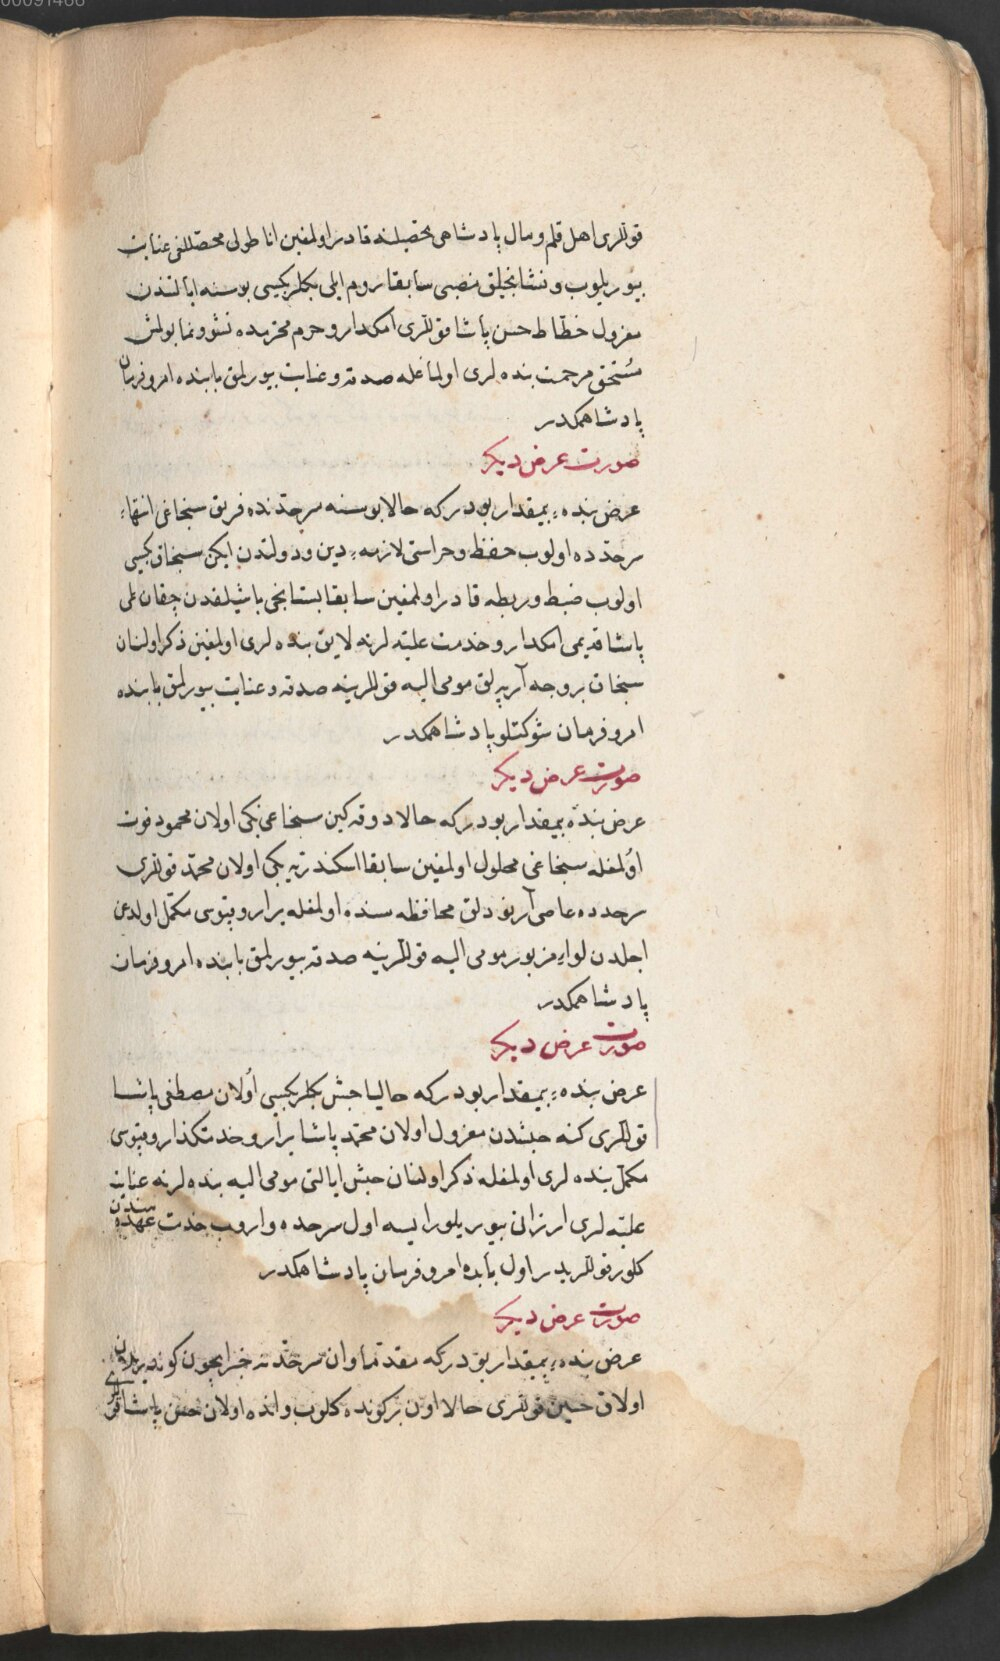 00091466
قوللری اهل قلم و مال پادشاهی تحصیلنه قادر اولمغین اناطولی محصللغی عنایت
بیوریلوب و نشانجیلق منصبی سابقا روم ایلی بکلربکیسی بوسنه ایالتندن
معزول خطاط حسن پاشا قوللری امکدار و حرم محترمده نشو و نما بولمش
مستحق مرحمت بنده لری اولماغله صدقه و عنایت بیورلمق بابنده امر و فرمان
پادشاهمکدر
صورت عرض دیکر
عرض بنده‌ء بیمقدار بودرکه حالا بوسنه سرحدنده فریق سنجاغی انتهاء
سرحدده اولوب حفظ و حراستی لازمه‌ء دین و دولتدن ایکن سنجاق بکیسی
اولوب ضبط و ربطه قادر اولمغین سابقا بستانجی باشیلقدن چقان علی
پاشا قدیمی امکدار و خدمت علیه لرنه لایق بنده لری اولمغین ذکر اولنان
سنجاق بر وجه آرپه لق مومی الیه قوللرینه صدقه و عنایت بیورلمق بابنده
امر و فرمان شوکتلو پادشاهمکدر
صورت عرض دیکر
عرض بنده بیمقدار بودرکه حالا دوقه کین سنجاغی بکی اولان محمود فوت
اولمغله سنجاغی محلول اولمغین سابقا اسکندریه بکی اولان محمد قوللری
سرحدده عاصی آرنودلق محافظه سنده اولمغله یرار و قپوسی مکمل اولدوغی
اجلدن لواء مزبور مومی الیه قوللرینه صدقه بیورلمق بابنده امر و فرمان
پادشاهمکدر
صورت عرض دیکر
عرض بنده‌ء بیمقدار بودرکه حالیا حبش بکلربکیسی اولان مصطفی پاشا
قوللری کنه حبشدن معزول اولان محمد پاشا یرار و خدمتکذار و قپوسی
مکمل بنده لری اولمغله ذکر اولنان حبش ایالتی مومی الیه بنده لرنه عنایت
علیه لری ارزانی بیوریلور ایسه اول سرحده واروب خدمت عهده سندن
کلور قوللریدر اول بابده امر و فرمان پادشاهمکدر
صورت عرض دیکر
عرض بنده‌ء بیمقدار بودرکه مقدما وان سرحدنه خبر ایچون کوندریلان
اولاق حسین قوللری حالا اون بر کونده کلوب وانده اولان حسن پاشا قوللری